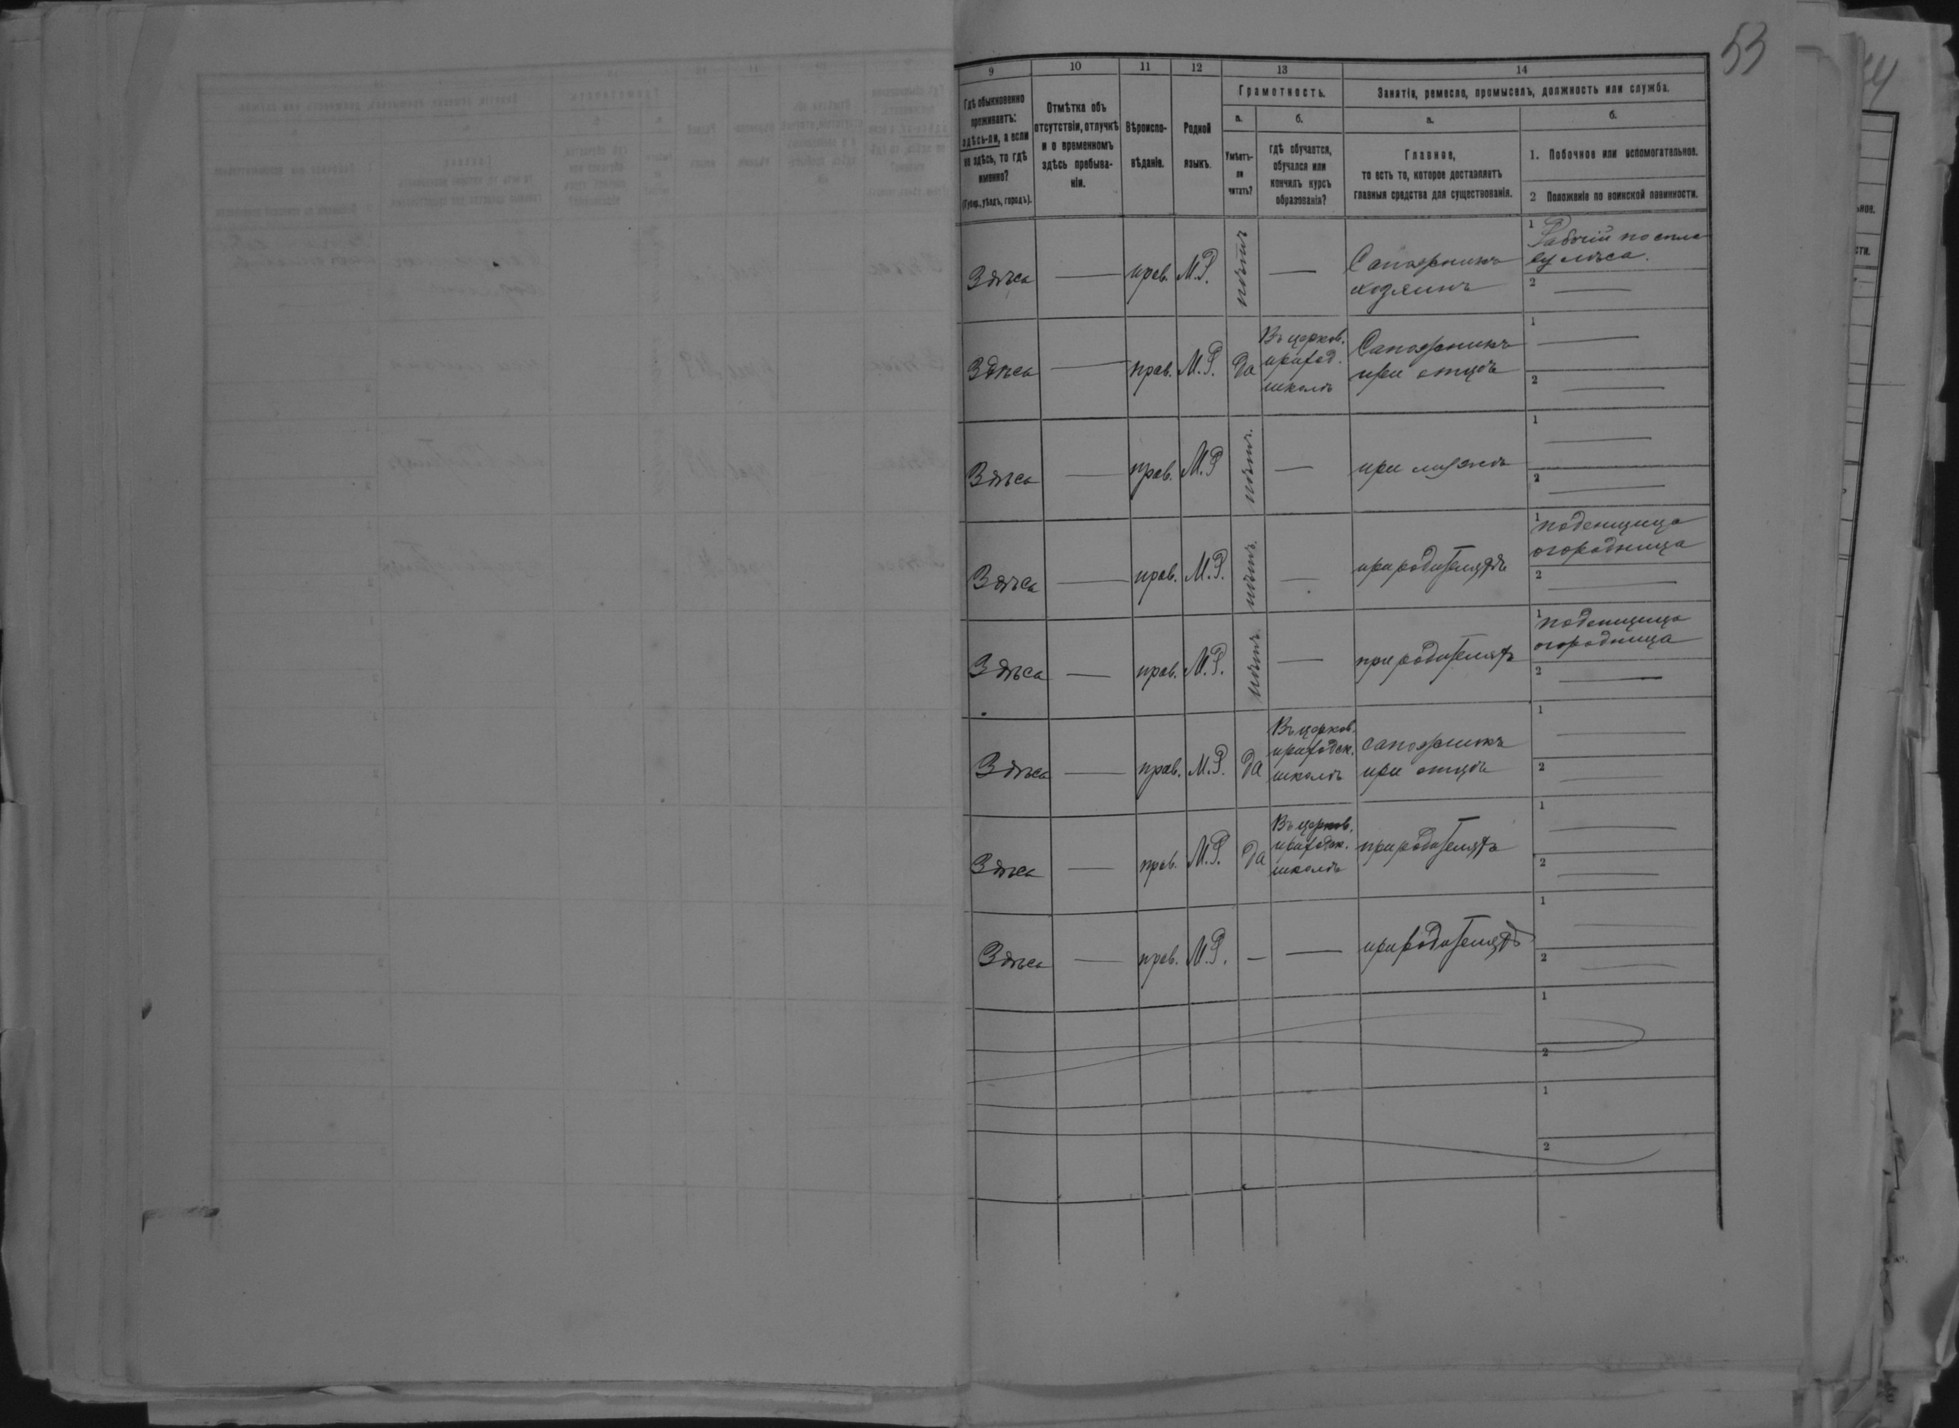 53
9 10 11 12 13 14
Гдѣ обыкновенно
проживаетъ:
здѣсь-ли, а если
не здѣсь, то гдѣ
именно?
(Губер., уѣздъ, городъ).
Отмѣтка объ
отсутствіи, отлучкѣ
и о временномъ
здѣсь пребыва-
ніи.
Вѣроиспо-
вѣданіе.
Родной
языкъ.
Грамотность.
а.
Умѣетъ-
ли
читать?
б.
гдѣ обучается,
обучался или
кончилъ курсъ
образованія?
Занятіе, ремесло, промыселъ, должность или служба.
а.
Главное,
то есть то, которое доставляетъ
главныя средства для существованія.
б.
1. Побочное или вспомогательное.
2 Положеніе по воинской повинности.
Здѣсь — прав. М.Р. нѣтъ — Сапожникъ
хозяинъ
1 Рабочій по спла
ву лѣса.
2 —
Здѣсь — прав. М.Р. да
Въ церков.
приход.
школѣ
Сапожникъ
при отцѣ
1 —
2 —
Здѣсь — прав. М.Р нѣтъ. — при мужѣ
1 —
2 —
Здѣсь — прав. М.Р. нѣтъ. — при родителяхъ
1 поденщица
огородница
2 —
Здѣсь — прав. М.Р. нѣтъ. — при родителяхъ
1 поденщица
огородница
2 —
Здѣсь — прав. М.Р. да
Въ церков.
приходск.
школѣ
сапожникъ
при отцѣ
1 —
2 —
Здѣсь — прав. М.Р. да
Въ церков.
приходск.
школѣ
при родителяхъ
1 —
2 —
Здѣсь — прав. М.Р. — — при родителяхъ
1 —
2 —
1
2
1
2